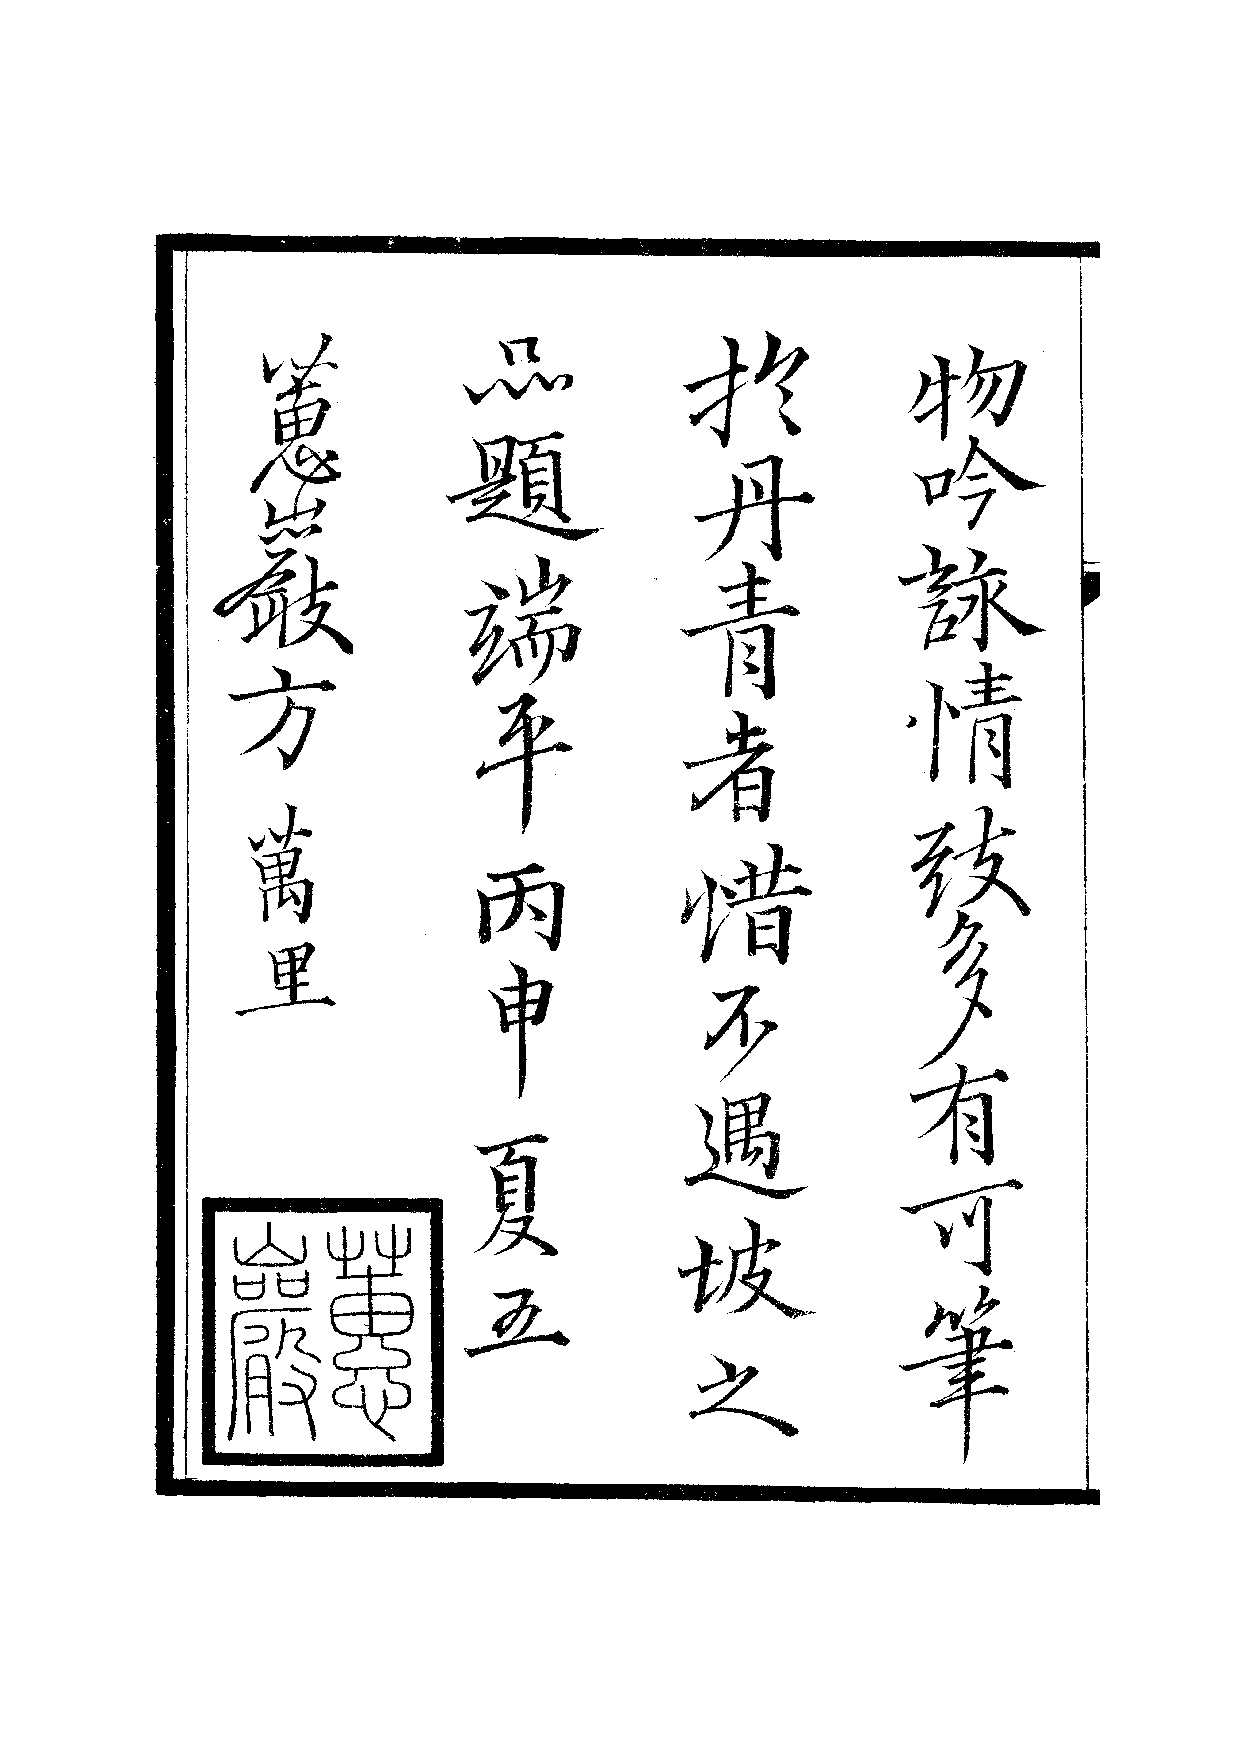 物吟詠情致多有可筆
於丹青者惜不遇坡之
品題端平丙申夏五
蕙巖方萬里
蕙巖